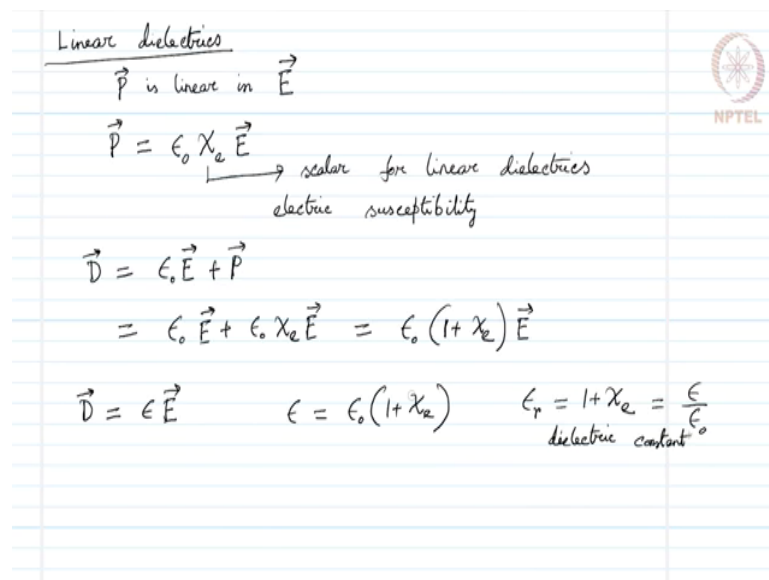 Linear dielectrics
P⃗ is linear in E⃗
NPTEL
P⃗ = ϵ₀ χₑ E⃗
→ scalar for linear dielectrics
electric susceptibility
D⃗ = ϵ₀E⃗ + P⃗
= ϵ₀ E⃗ + ϵ₀ χₑ E⃗ = ϵ₀ (1 + χₑ) E⃗
D⃗ = ϵ E⃗ ϵ = ϵ₀ (1 + χₑ) ϵᵣ = 1 + χₑ = ϵ/ϵ₀
dielectric constant